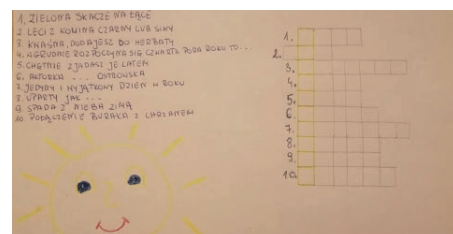 1, ZIELONA SKACZE NA ŁĄCE
2. LECI Z KOMINA CZARNY LUB SINY
3. KWAŚNA, DODAJESZ DO HERBATY
4. W GRUDNIU ROZPOCZYNA SIĘ CZWARTA PORA ROKU TO...
5. CHĘTNIE ZJADASZ JE LATEM
6. AKTORKA ... OSTROWSKA
7. JEDYNY I WYJĄTKOWY DZIEŃ W ROKU
8. UPARTY JAK ...
9. SPADA Z NIEBA ZIMĄ
10. POŁĄCZENIE BURAKA Z CHRZANEM
1.
2.
3.
4.
5.
6.
7.
8.
9.
10.